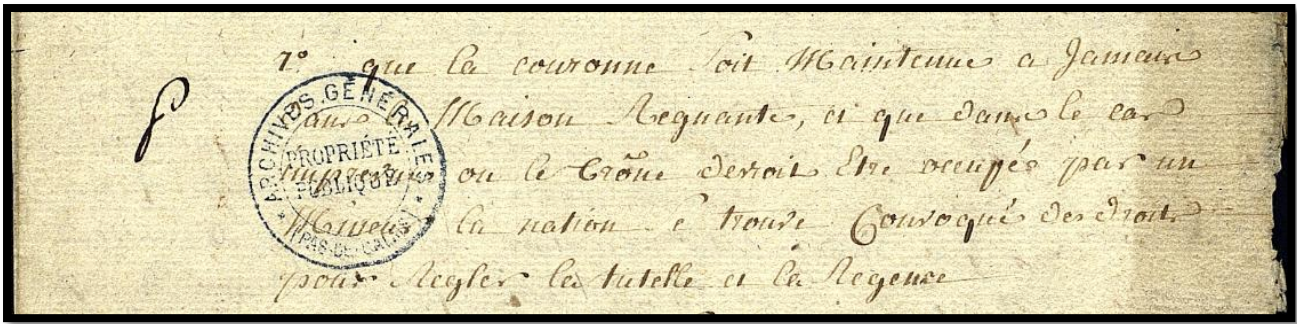 7º que la couronne soit Maintenue a Jamais
dans la Maison Regnante, et que dans le cas
imprévu ou le trône devroit Etre occupée par un
Mineur la nation se trouve Convoquée de droit
pour Regler la tutelle et la Regence
ARCHIVES GÉNÉRALES
PROPRIÉTÉ
PUBLIQUE
(PAS-DE-CALAIS)